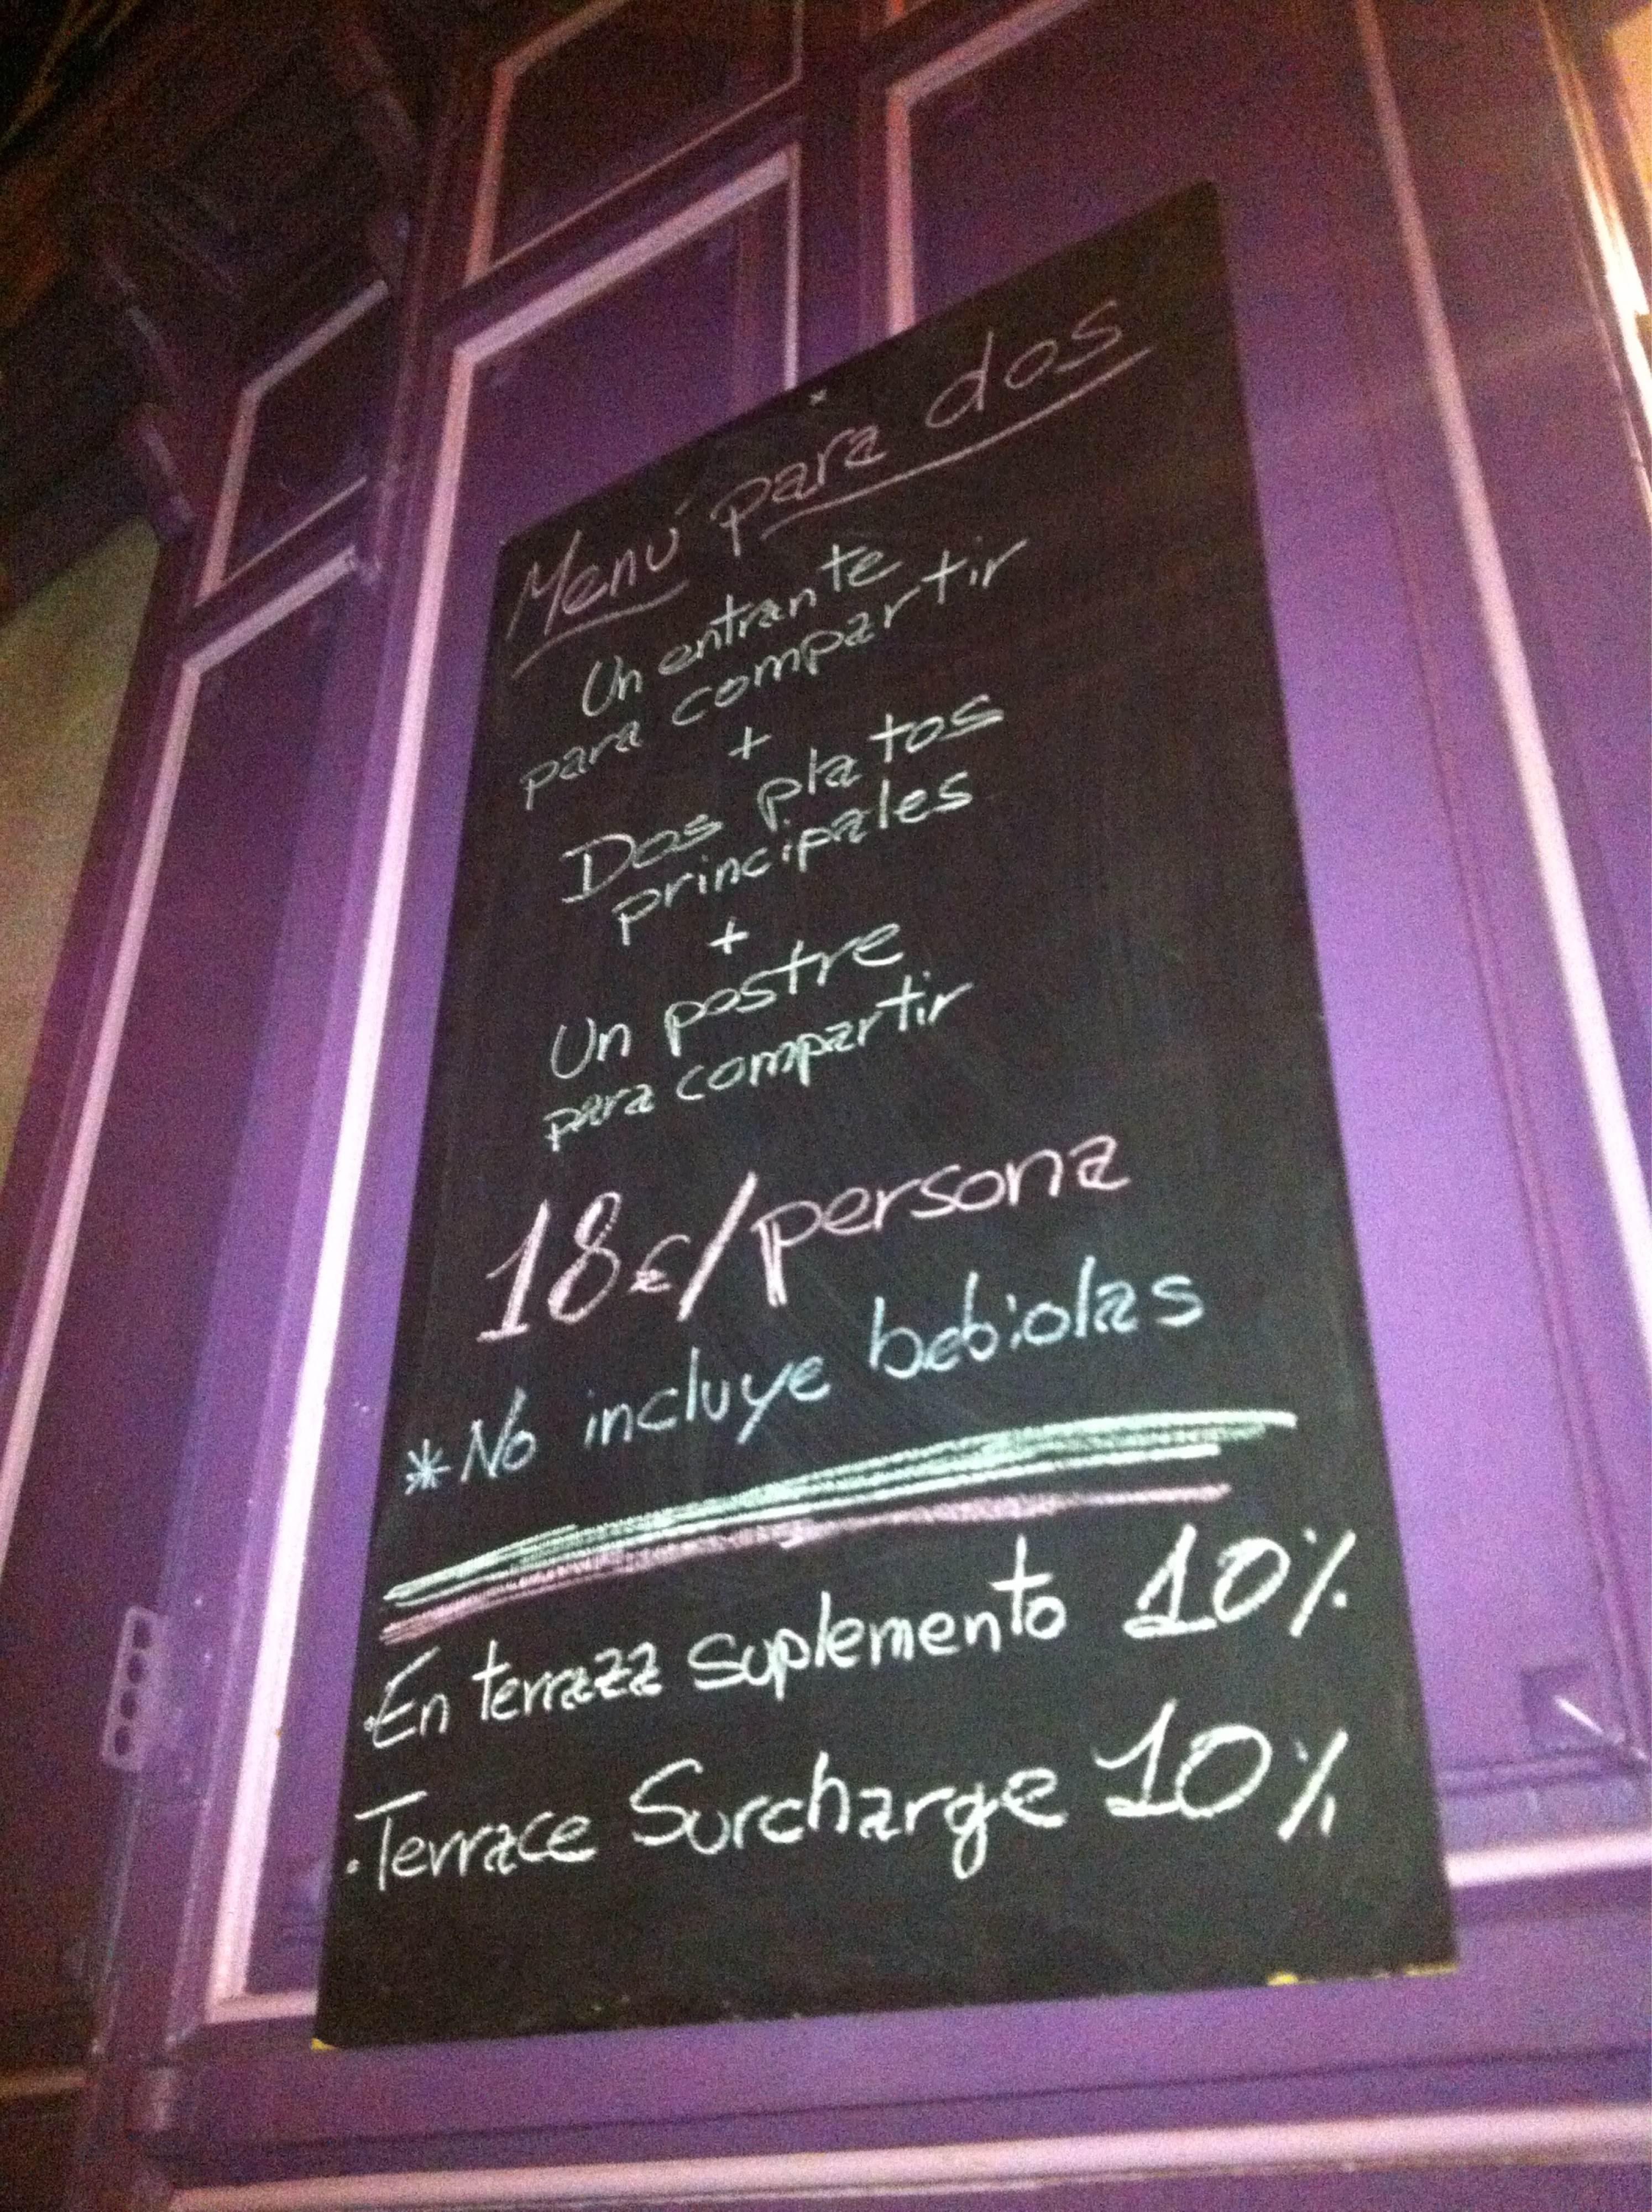 Menú para dos
Un entrante
para compartir
+
Dos platos
principales
+
Un postre
para compartir
18€/persona
*No incluye bebidas
·En terraza suplemento 10%
·Terrace Surcharge 10%